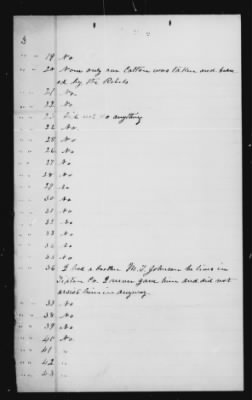 3
" " 19 No
" " 20 None only our Cotton was taken and burn
ed by the Rebels
" " 21 No
" " 22 No
" " 23 Did not do anything
" " 24 No
" " 25 No
" " 26 No
" " 27 No
" " 28 No
" " 29 No
" " 30 No
" " 31 No
" " 32 No
" " 33 No
" " 34 No
" " 35 No
" " 36 I had a brother M. T. Johnson he lives in
Tipton Co. I never gave him and did not
assist him in anyway
" " 37 No
" " 38 No
" " 39 No
" " 40 No
" " 41 "
" " 42 "
" " 43 "